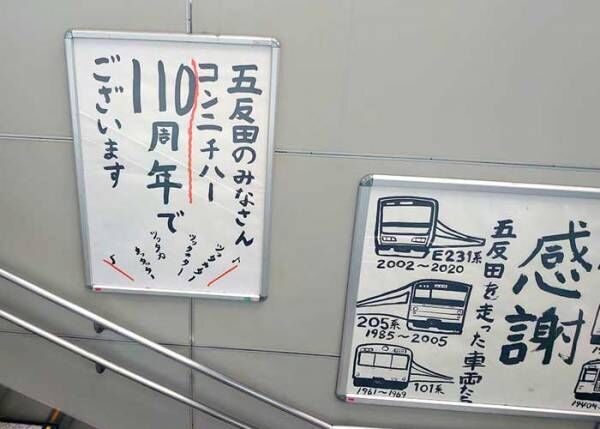 五反田のみなさん
コンニチハー
110周年で
ございます
感謝
五反田を走った車両たち
E231系
2002～2020
205系
1985～2005
101系
1961～1969